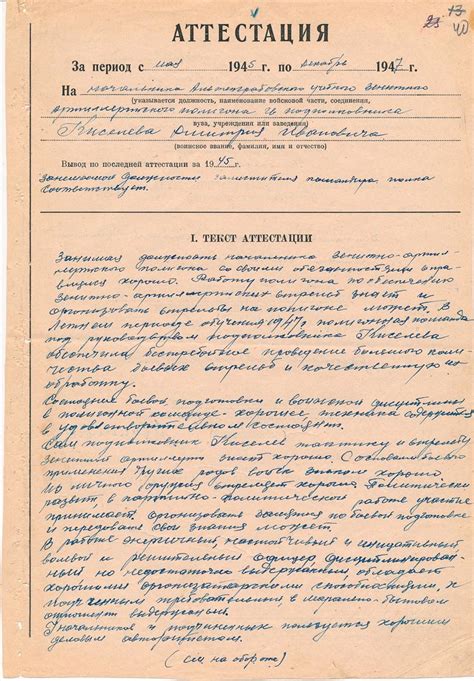 23 13
40
АТТЕСТАЦИЯ
За период с мая 1945 г. по декабрь 1947 г.
На начальника учебного зенитно
артиллерийского полигона подполковника
(указывается должность, наименование войсковой части, соединения,
Киселева Дмитрия Ивановича
вуза, учреждения или заведения)
(воинское звание, фамилия, имя и отчество)
Вывод по последней аттестации за 1945 г.
занимаемой должности заместителя командира полка
соответствует.
I. ТЕКСТ АТТЕСТАЦИИ
Занимая должность начальника зенитно-артил-
лерийского полигона со своими обязанностями спра-
вляется хорошо. Работу полигона по обеспечению
зенитно-артиллерийских стрельб знает и
организовать стрельбы на полигоне может. В
летнем периоде обучения 1947г. полигонная команда
под руководством подполковника Киселева
обеспечила бесперебойное проведение большого коли-
чества боевых стрельб и качественную их
обработку.
Состояние боевой подготовки и воинской дисциплины
в полигонной команде хорошее, техника содержится
в удовлетворительном состоянии.
Сам подполковник Киселев тактику и стрельбу
зенитной артиллерии знает хорошо. С основами боевого
применения других родов войск знаком хорошо.
Из личного оружия стреляет хорошо. Политически
развит в партийно-политической работе участие
принимает. Организовать занятия по боевой подготовке
и передавать свои знания может.
В работе энергичный, настойчивый и инициативный
волевой и решительный офицер, дисциплинирован-
ный но недостаточно выдержанный, обладает
хорошими организаторскими способностями, к
подчиненным требователен, в морально-бытовом
отношении выдержан.
У начальников и подчиненных пользуется хорошим
деловым авторитетом.
(см на обороте)